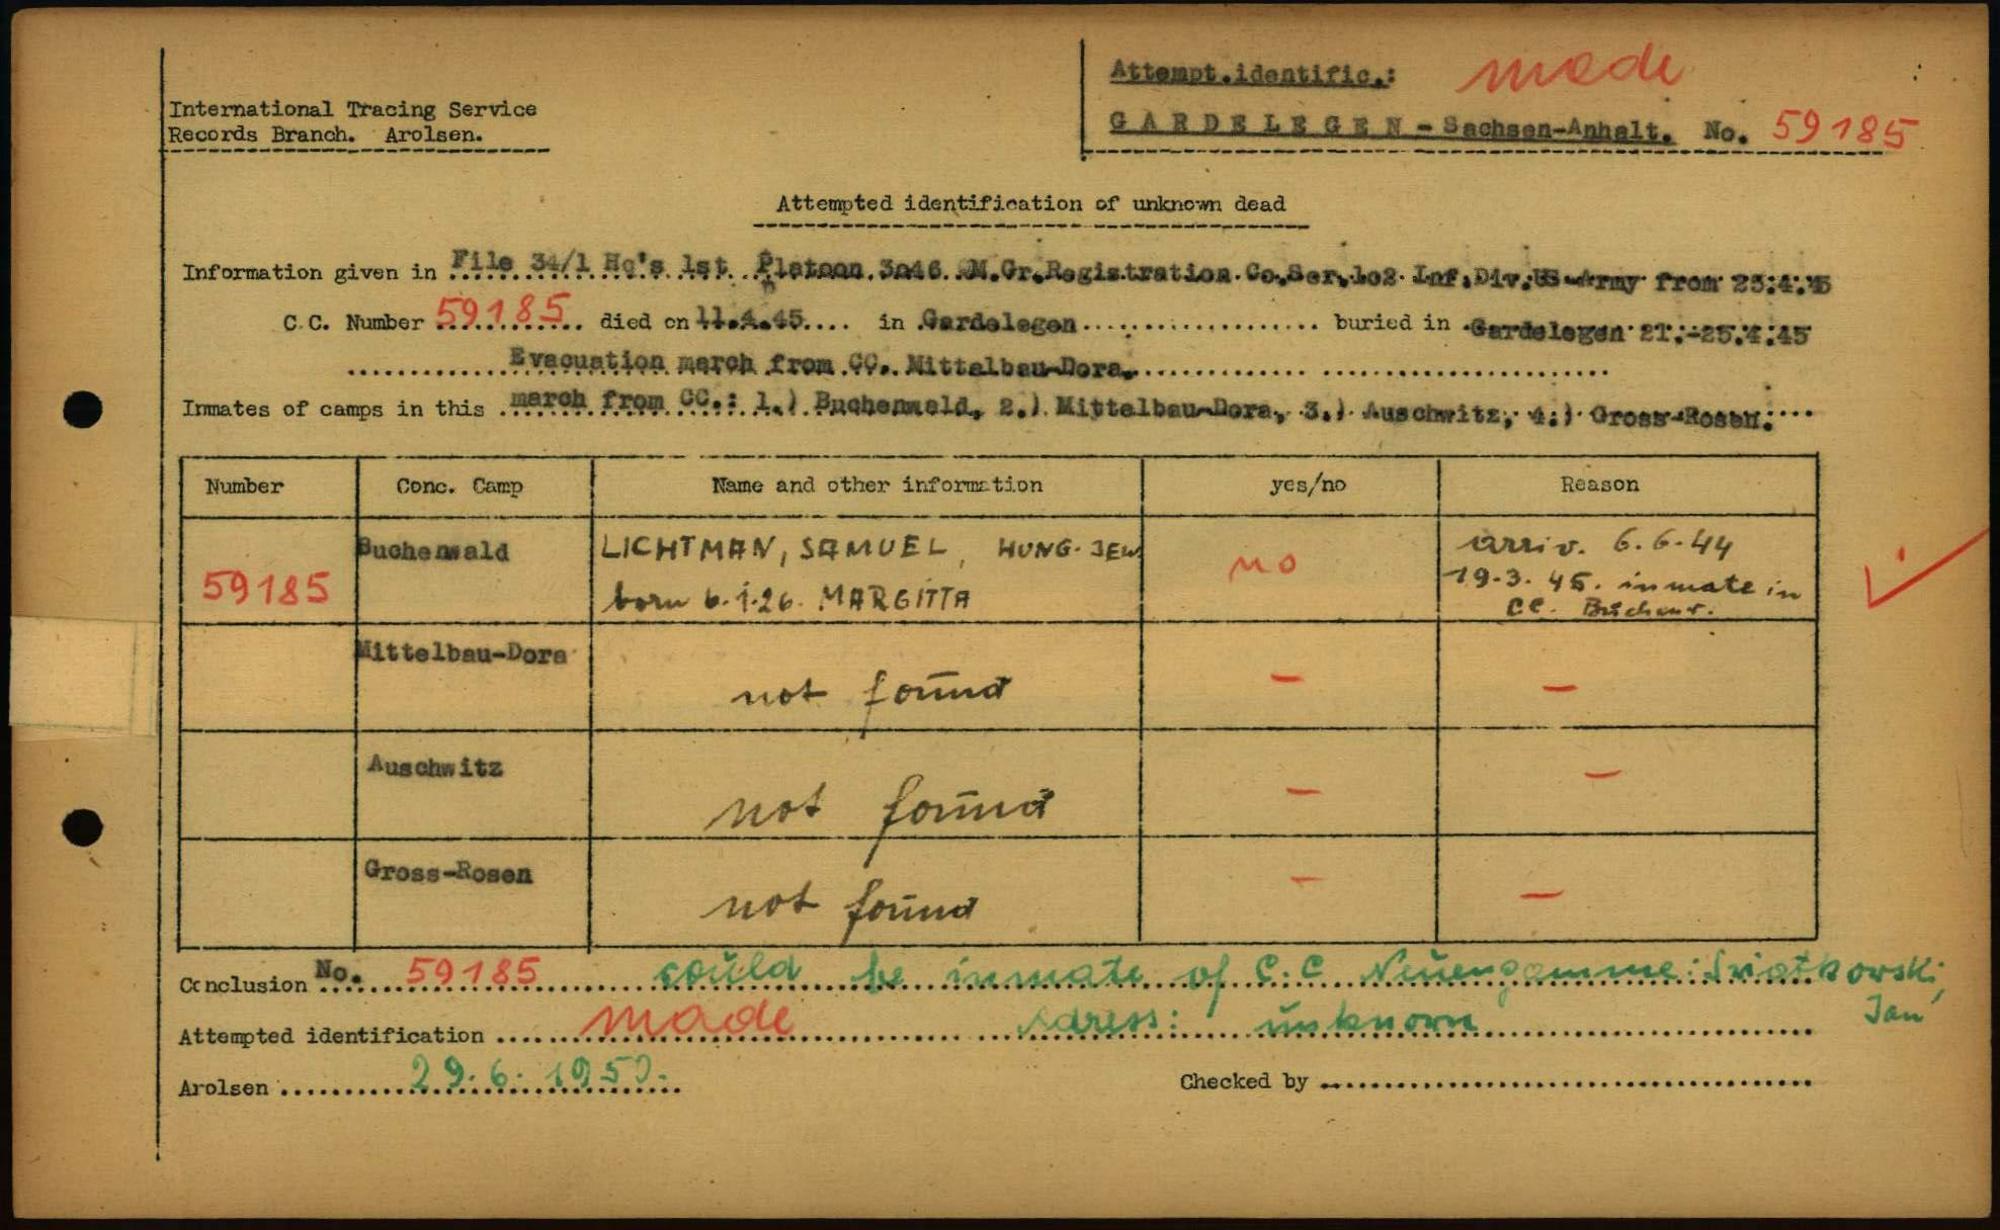 Attempt.identific.: made
International Tracing Service
Records Branch. Arolsen.
GARDELEGEN - Sachsen-Anhalt. No. 59185
Attempted identification of unknown dead
Information given in File 34/1 Hq's 1st Platoon 3046 .M.Gr.Registration Co.Ser.1o2 Inf.Div.US-Army from 25.4.45
C.C. Number 59185 died on 11.4.45 in Gardelegen buried in Gardelegen 21.-25.4.45
Evacuation march from CC. Mittelbau-Dora.
Inmates of camps in this march from CC.: 1.) Buchenwald, 2.) Mittelbau-Dora, 3.) Auschwitz, 4.) Gross-Rosen.
Number Conc. Camp Name and other information yes/no Reason
59185 Buchenwald LICHTMAN, SAMUEL, HUNG. JEW no arriv. 6.6.44
born 6.1.26. MARGITTA 19.3.45. inmate in
CC. Buchenw.
Mittelbau-Dora not found — —
Auschwitz not found — —
Gross-Rosen not found — —
Conclusion No. 59185 could be inmate of C.C Neuengamme:
Jan
Attempted identification made Adress: unknown
Arolsen 29.6.1950. Checked by